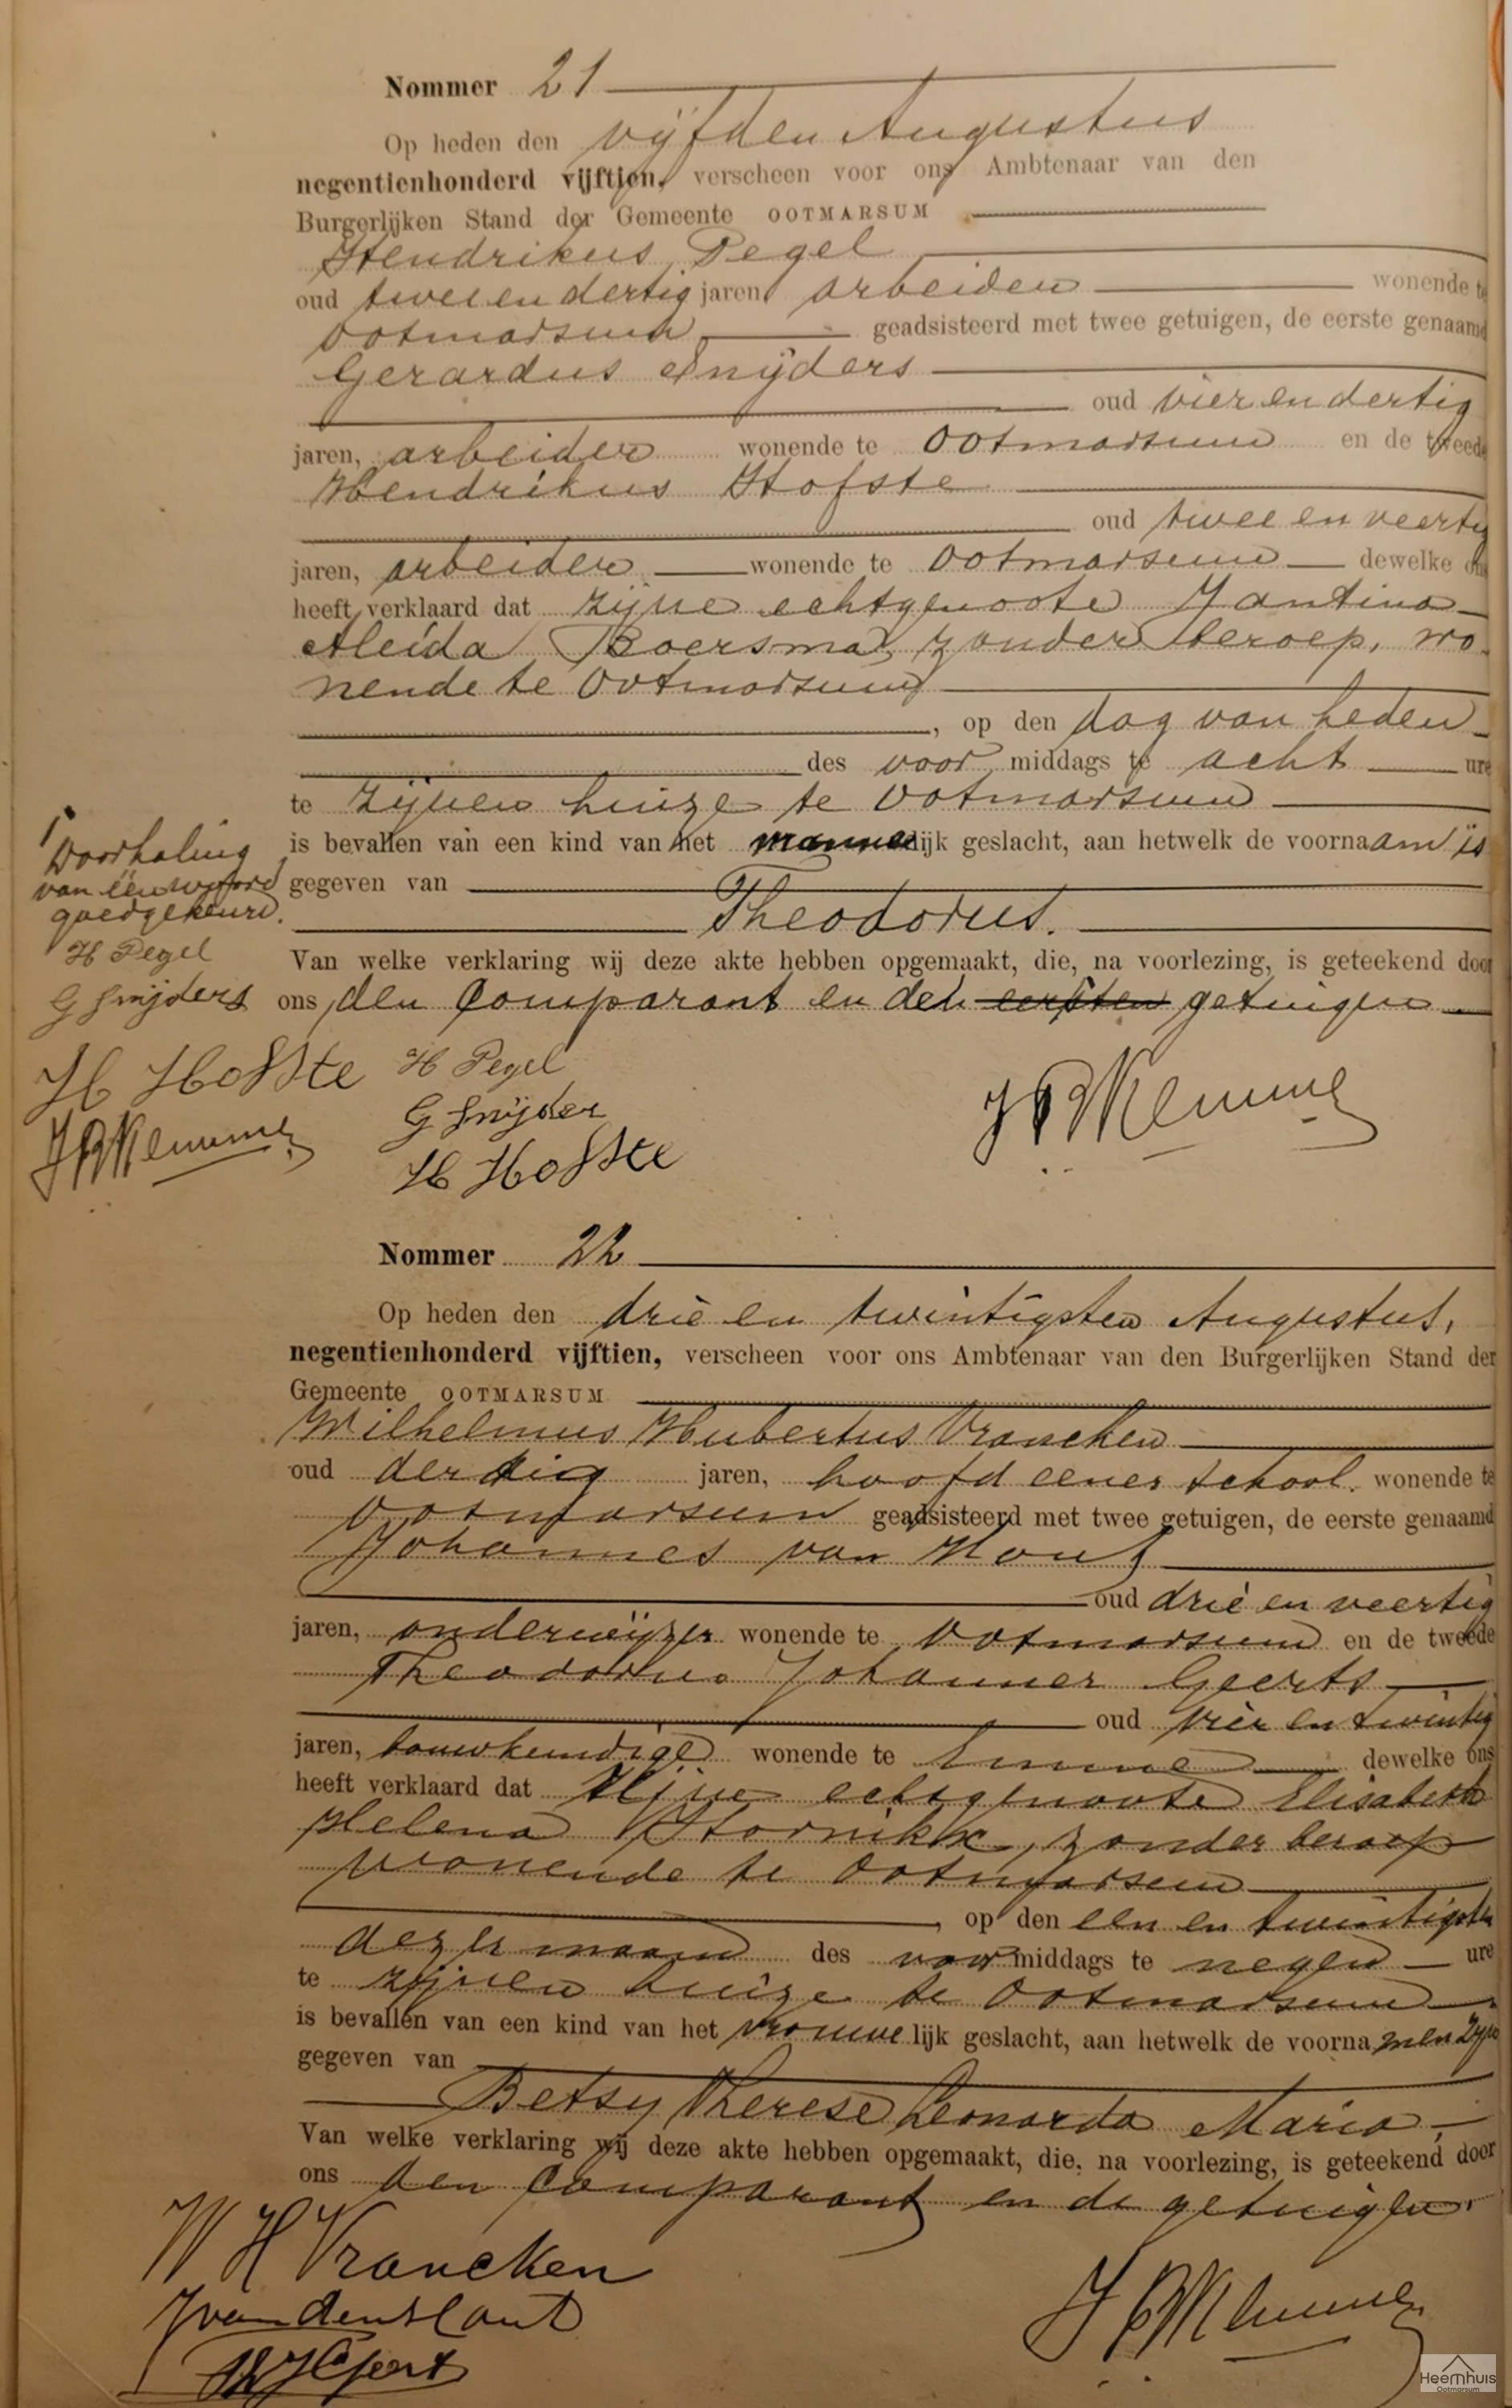 Nommer 21
Op heden den vijfden Augustus
negentienhonderd vijftien, verscheen voor ons Ambtenaar van den
Burgerlijken Stand der Gemeente OOTMARSUM
Hendrikus Pegel
oud twee en dertig jaren arbeider wonende te
Ootmarsum geadsisteerd met twee getuigen, de eerste genaamd
Gerardus Snijders
oud vier en dertig
jaren, arbeider wonende te Ootmarsum en de tweede
Hendrikus Hofste
oud twee en veertig
jaren, arbeider wonende te Ootmarsum dewelke ons
heeft verklaard dat zijne echtgenoote Jantina
Aleida Boersma, zonder beroep, wo-
nende te Ootmarsum
, op den dag van heden
des voor middags te acht ure
te zijnen huize te Ootmarsum
is bevallen van een kind van het mannelijk geslacht, aan hetwelk de voornaam is
gegeven van
Theodorus.
Van welke verklaring wij deze akte hebben opgemaakt, die, na voorlezing, is geteekend door
ons, den Comparant en den eersten getuigen
Doorhaling
van één woord
goedgekeurd.
H Pegel
G Snijders
H Hofste
H Pegel
G Snijder
H Hofste
Nommer 22
Op heden den drie en twintigsten Augustus,
negentienhonderd vijftien, verscheen voor ons Ambtenaar van den Burgerlijken Stand der
Gemeente OOTMARSUM
Wilhelmus Hubertus Vrancken
oud dertig jaren, hoofd eener school. wonende te
Ootmarsum geadsisteerd met twee getuigen, de eerste genaamd
Johannes van Hout
oud drie en veertig
jaren, onderwijzer wonende te Ootmarsum en de tweede
Theodorus Johannes Geerts
oud vier en twintig
jaren, bouwkundige wonende te dewelke ons
heeft verklaard dat zijne echtgenoote Elisabeth
Helena zonder beroep
wonende te Ootmarsum
, op den een en twintigsten
dezer maand des voor middags te negen ure
te zijnen huize te Ootmarsum
is bevallen van een kind van het vrouwelijk geslacht, aan hetwelk de voornamen zijn
gegeven van
Betsy Therese Leonarda Maria,
Van welke verklaring wij deze akte hebben opgemaakt, die, na voorlezing, is geteekend door
ons den Comparant en de getuigen.
W H Vrancken
J van den Hout
Heemhuis
Ootmarsum